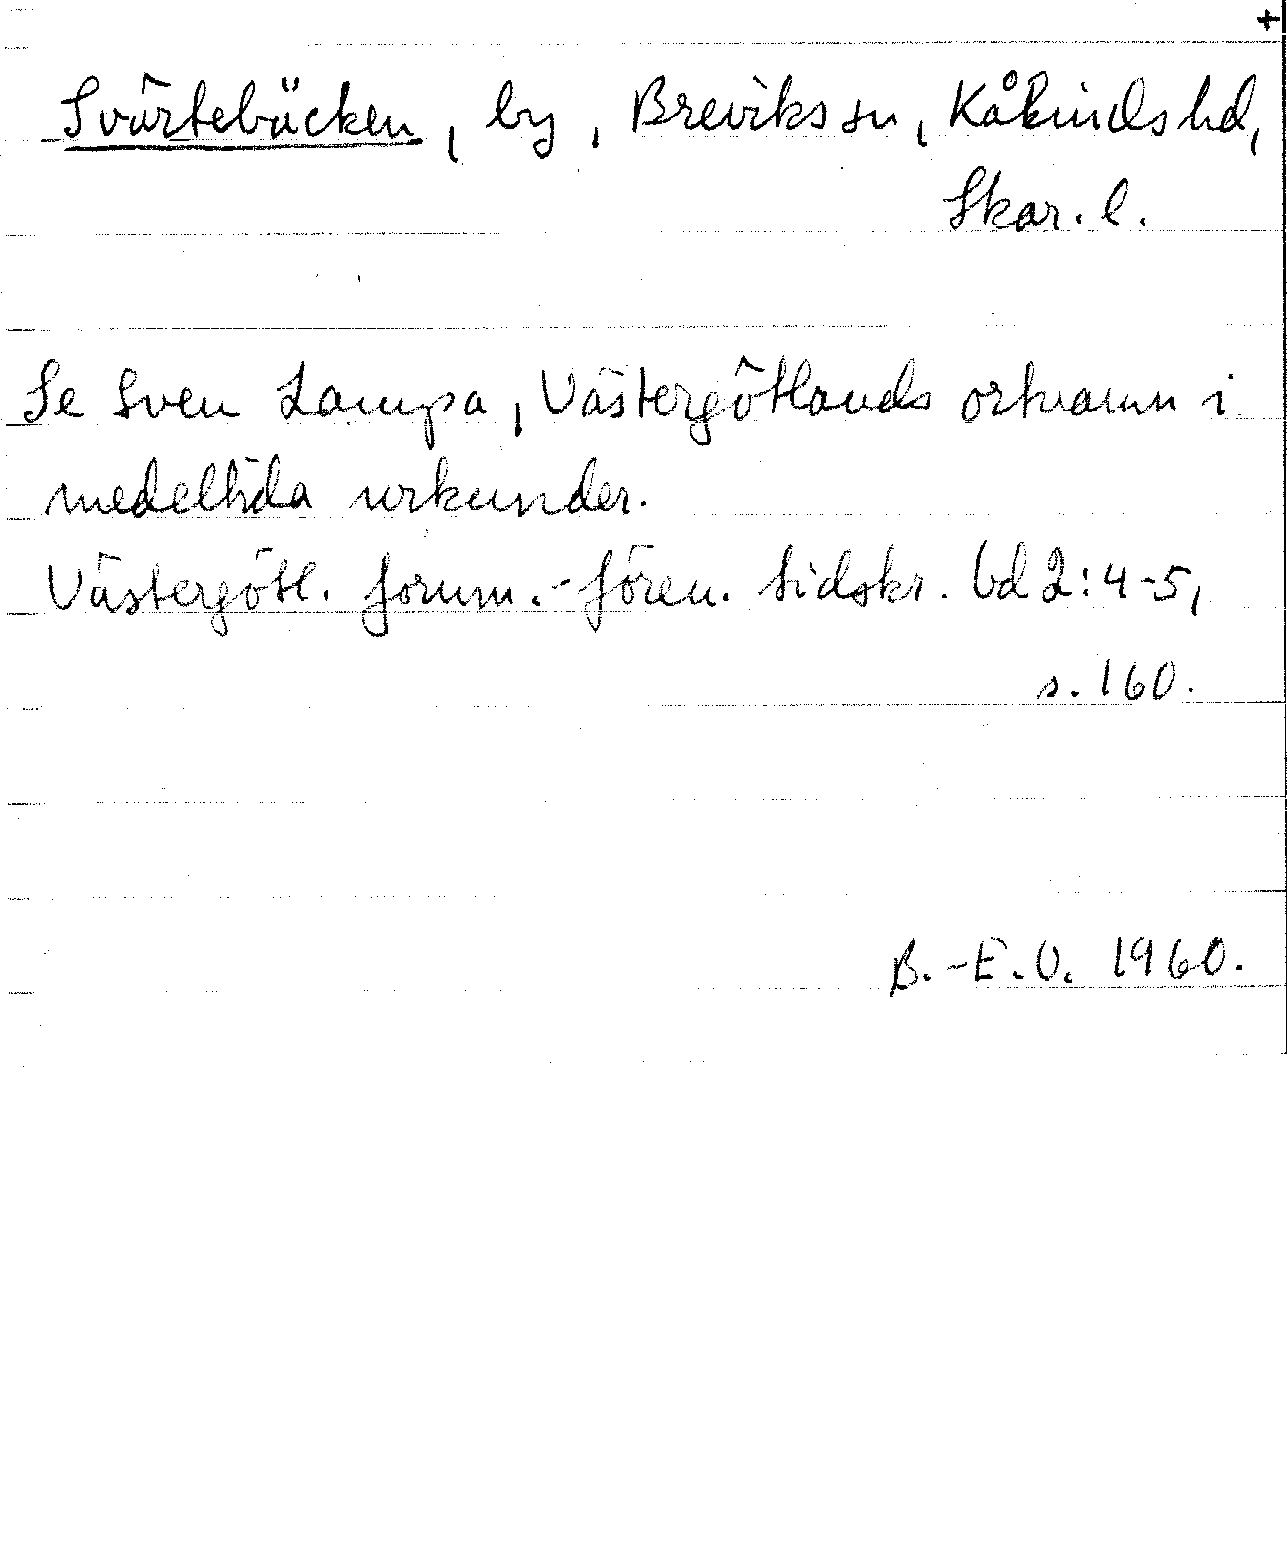 +
Svärtebäcken, by, Breviks sn, Kåkinds hd,
Skar. l.
Se Sven Lampa, Västergötlands ortnamn i
medeltida urkunder.
Västergötl. fornm.-fören. tidskr. bd 2:4-5,
s. 160.
B.-E.O. 1960.